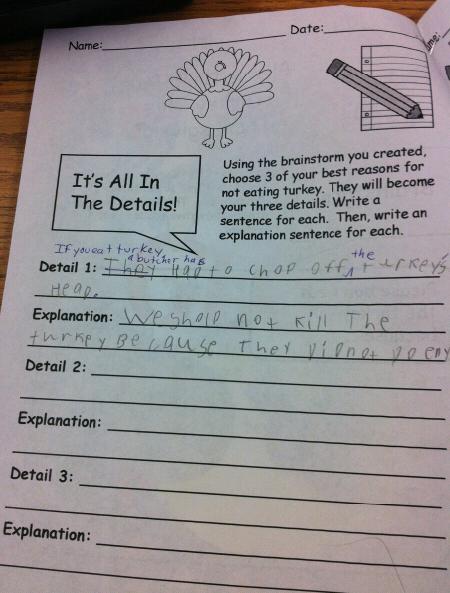 Name: Date:
me:
It's All In
The Details!
Using the brainstorm you created,
choose 3 of your best reasons for
not eating turkey. They will become
your three details. Write a
sentence for each. Then, write an
explanation sentence for each.
If you eat turkey
a butcher has the
Detail 1: They had to chop off turkey's
Head.
Explanation: we shold not kill The
turkey Because They didnot do eny
Detail 2:
Explanation:
Detail 3:
Explanation: